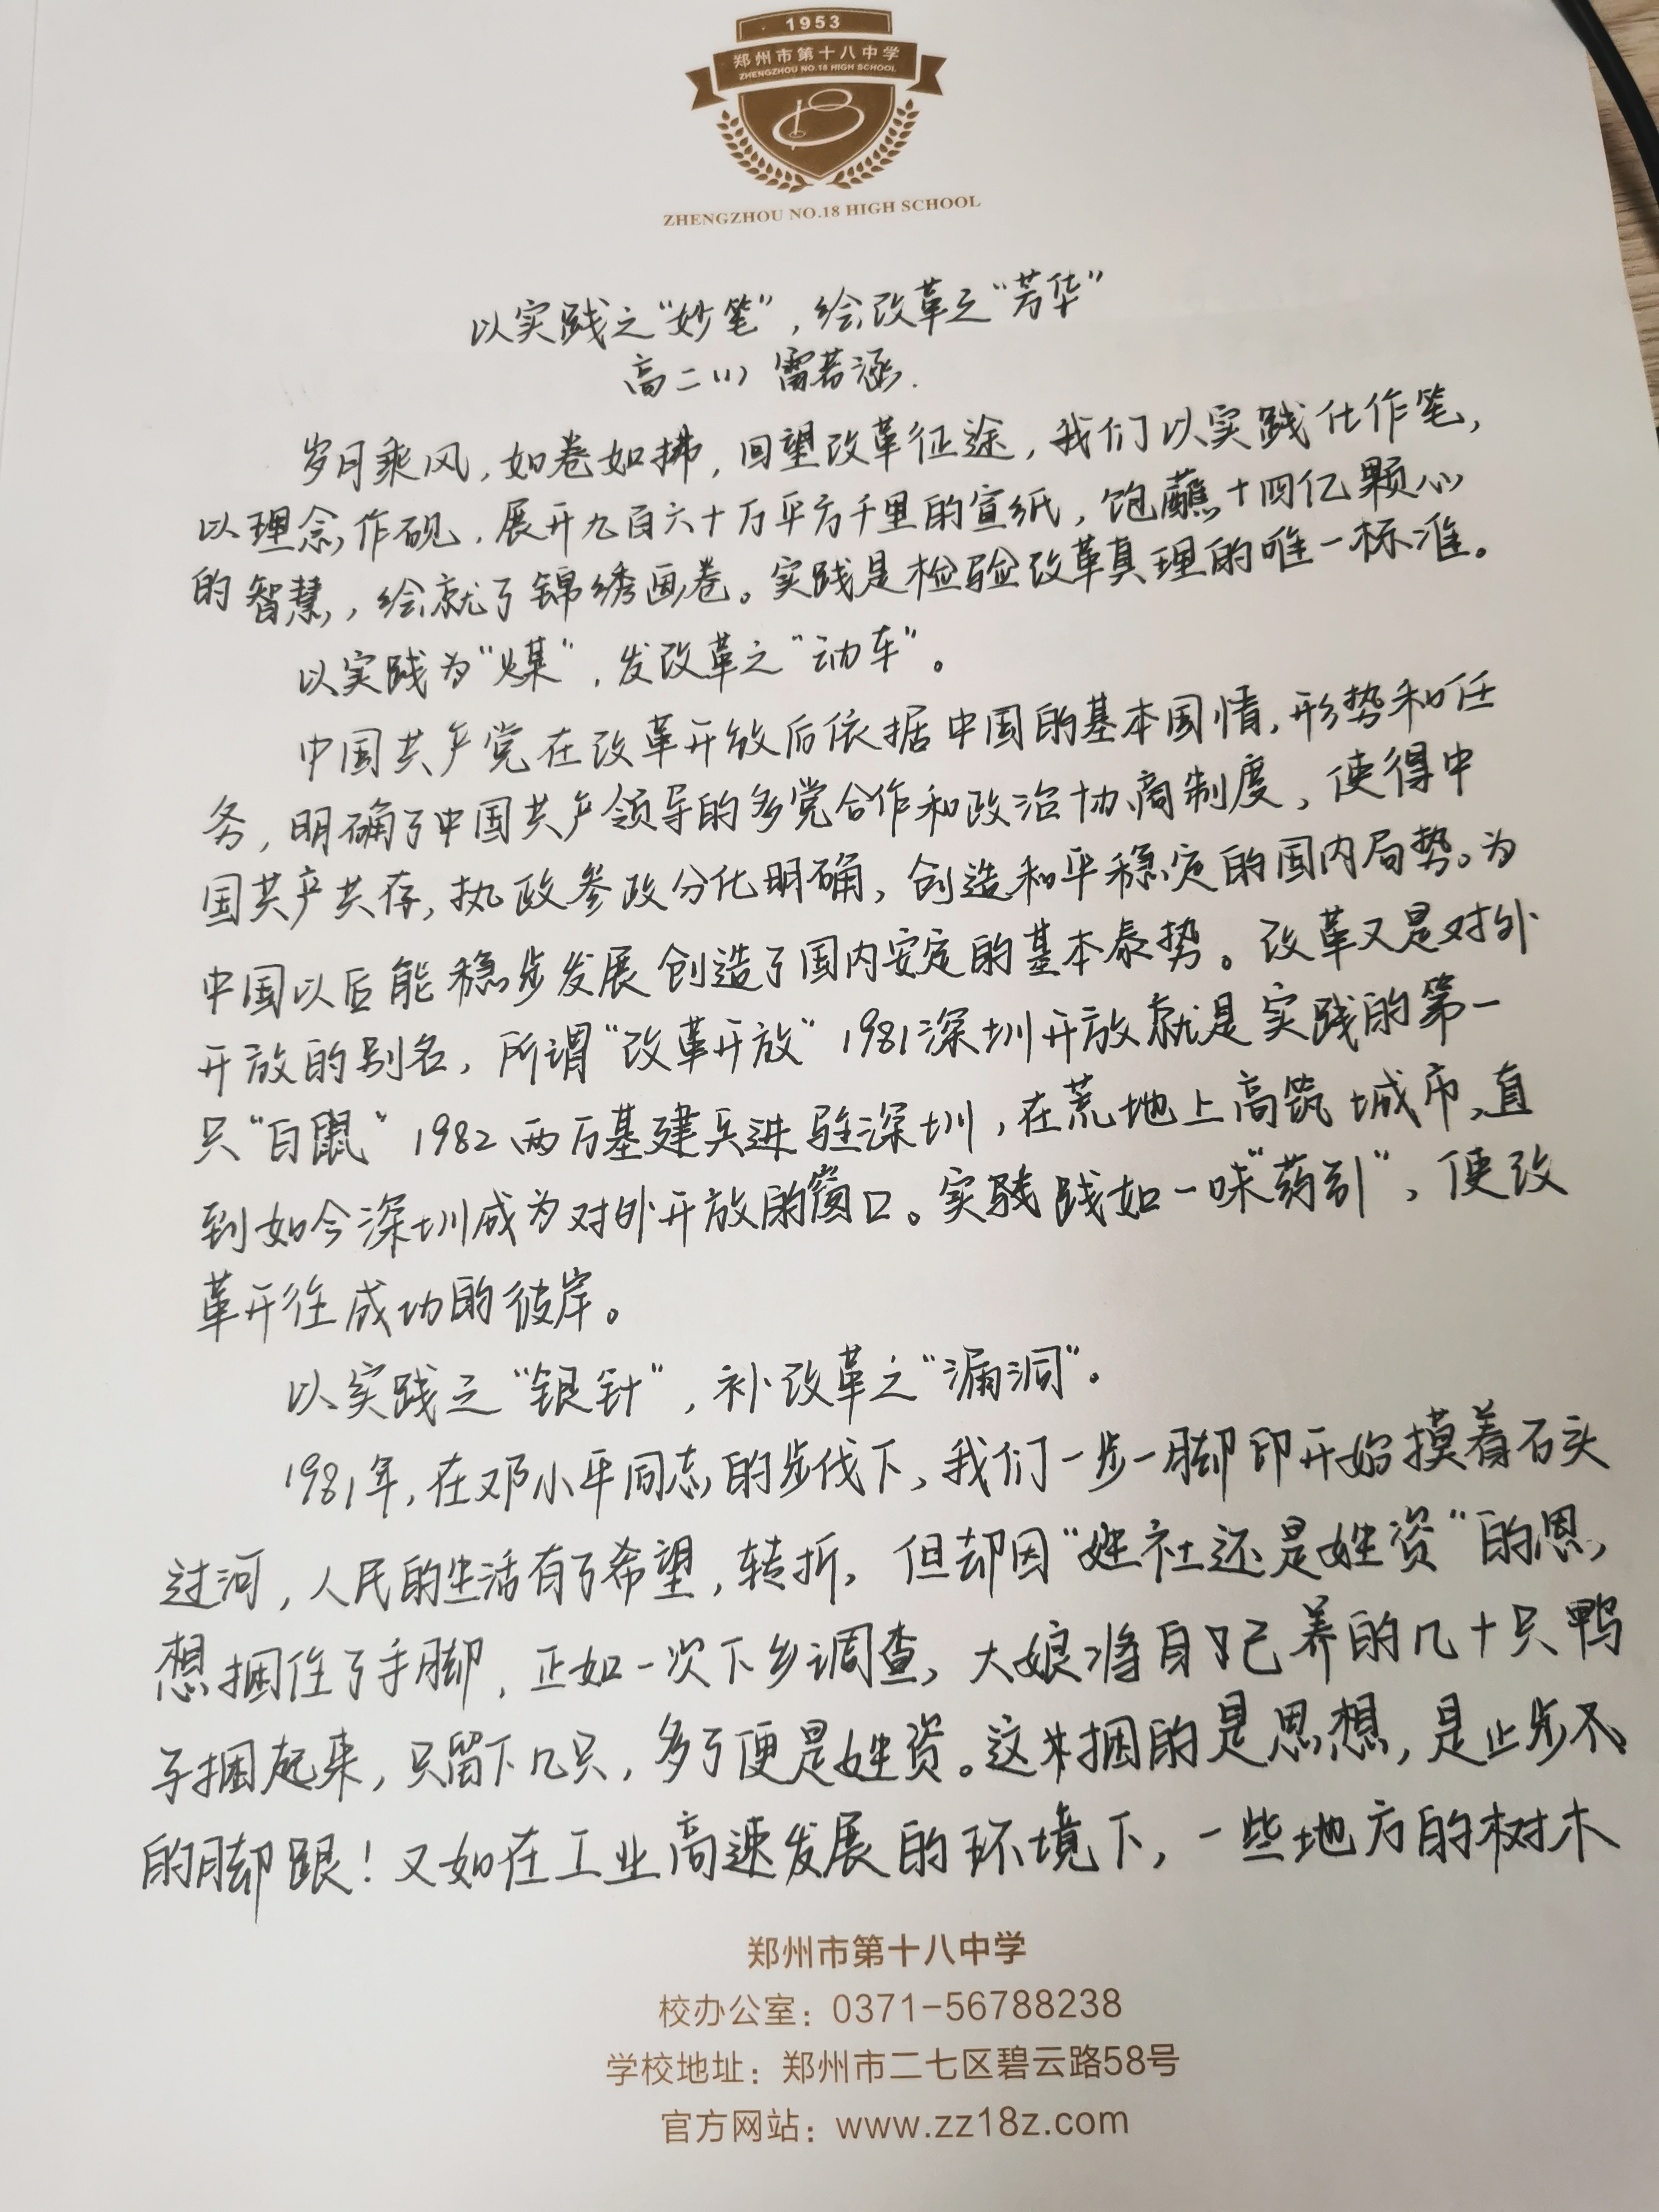 1953
郑州市第十八中学
ZHENGZHOU NO.18 HIGH SCHOOL
ZHENGZHOU NO.18 HIGH SCHOOL
以实践之“妙笔”,绘改革之“芳华”
高二(1) 雷若涵.
岁月乘风,如卷如拂,回望改革征途,我们以实践化作笔,
以理念作砚,展开九百六十万平方千里的宣纸,饱蘸十四亿颗心
的智慧,绘就了锦绣画卷。实践是检验改革真理的唯一标准。
以实践为“煤”,发改革之“动车”。
中国共产党在改革开放后依据中国的基本国情,形势和任
务,明确了中国共产领导的多党合作和政治协商制度,使得中
国共产共存,执政参政分化明确,创造和平稳定的国内局势。为
中国以后能稳步发展创造了国内安定的基本泰势。改革又是对外
开放的别名,所谓“改革开放”1981深圳开放就是实践的第一
只“白鼠”1982两万基建兵进驻深圳,在荒地上高筑城市,直
到如今深圳成为对外开放的窗口。实践如一味“药引”,使改
革开往成功的彼岸。
以实践之“银针”,补改革之“漏洞”。
1981年,在邓小平同志的步伐下,我们一步一脚印开始摸着石头
过河,人民的生活有了希望,转折,但却因“姓社还是姓资”的思
想捆住了手脚,正如一次下乡调查,大娘将自己养的几十只鸭
子捆起来,只留下几只,多了便是姓资。这捆的是思想,是止步不
的脚跟!又如在工业高速发展的环境下,一些地方的树木
郑州市第十八中学
校办公室:0371-56788238
学校地址:郑州市二七区碧云路58号
官方网站:www.zz18z.com